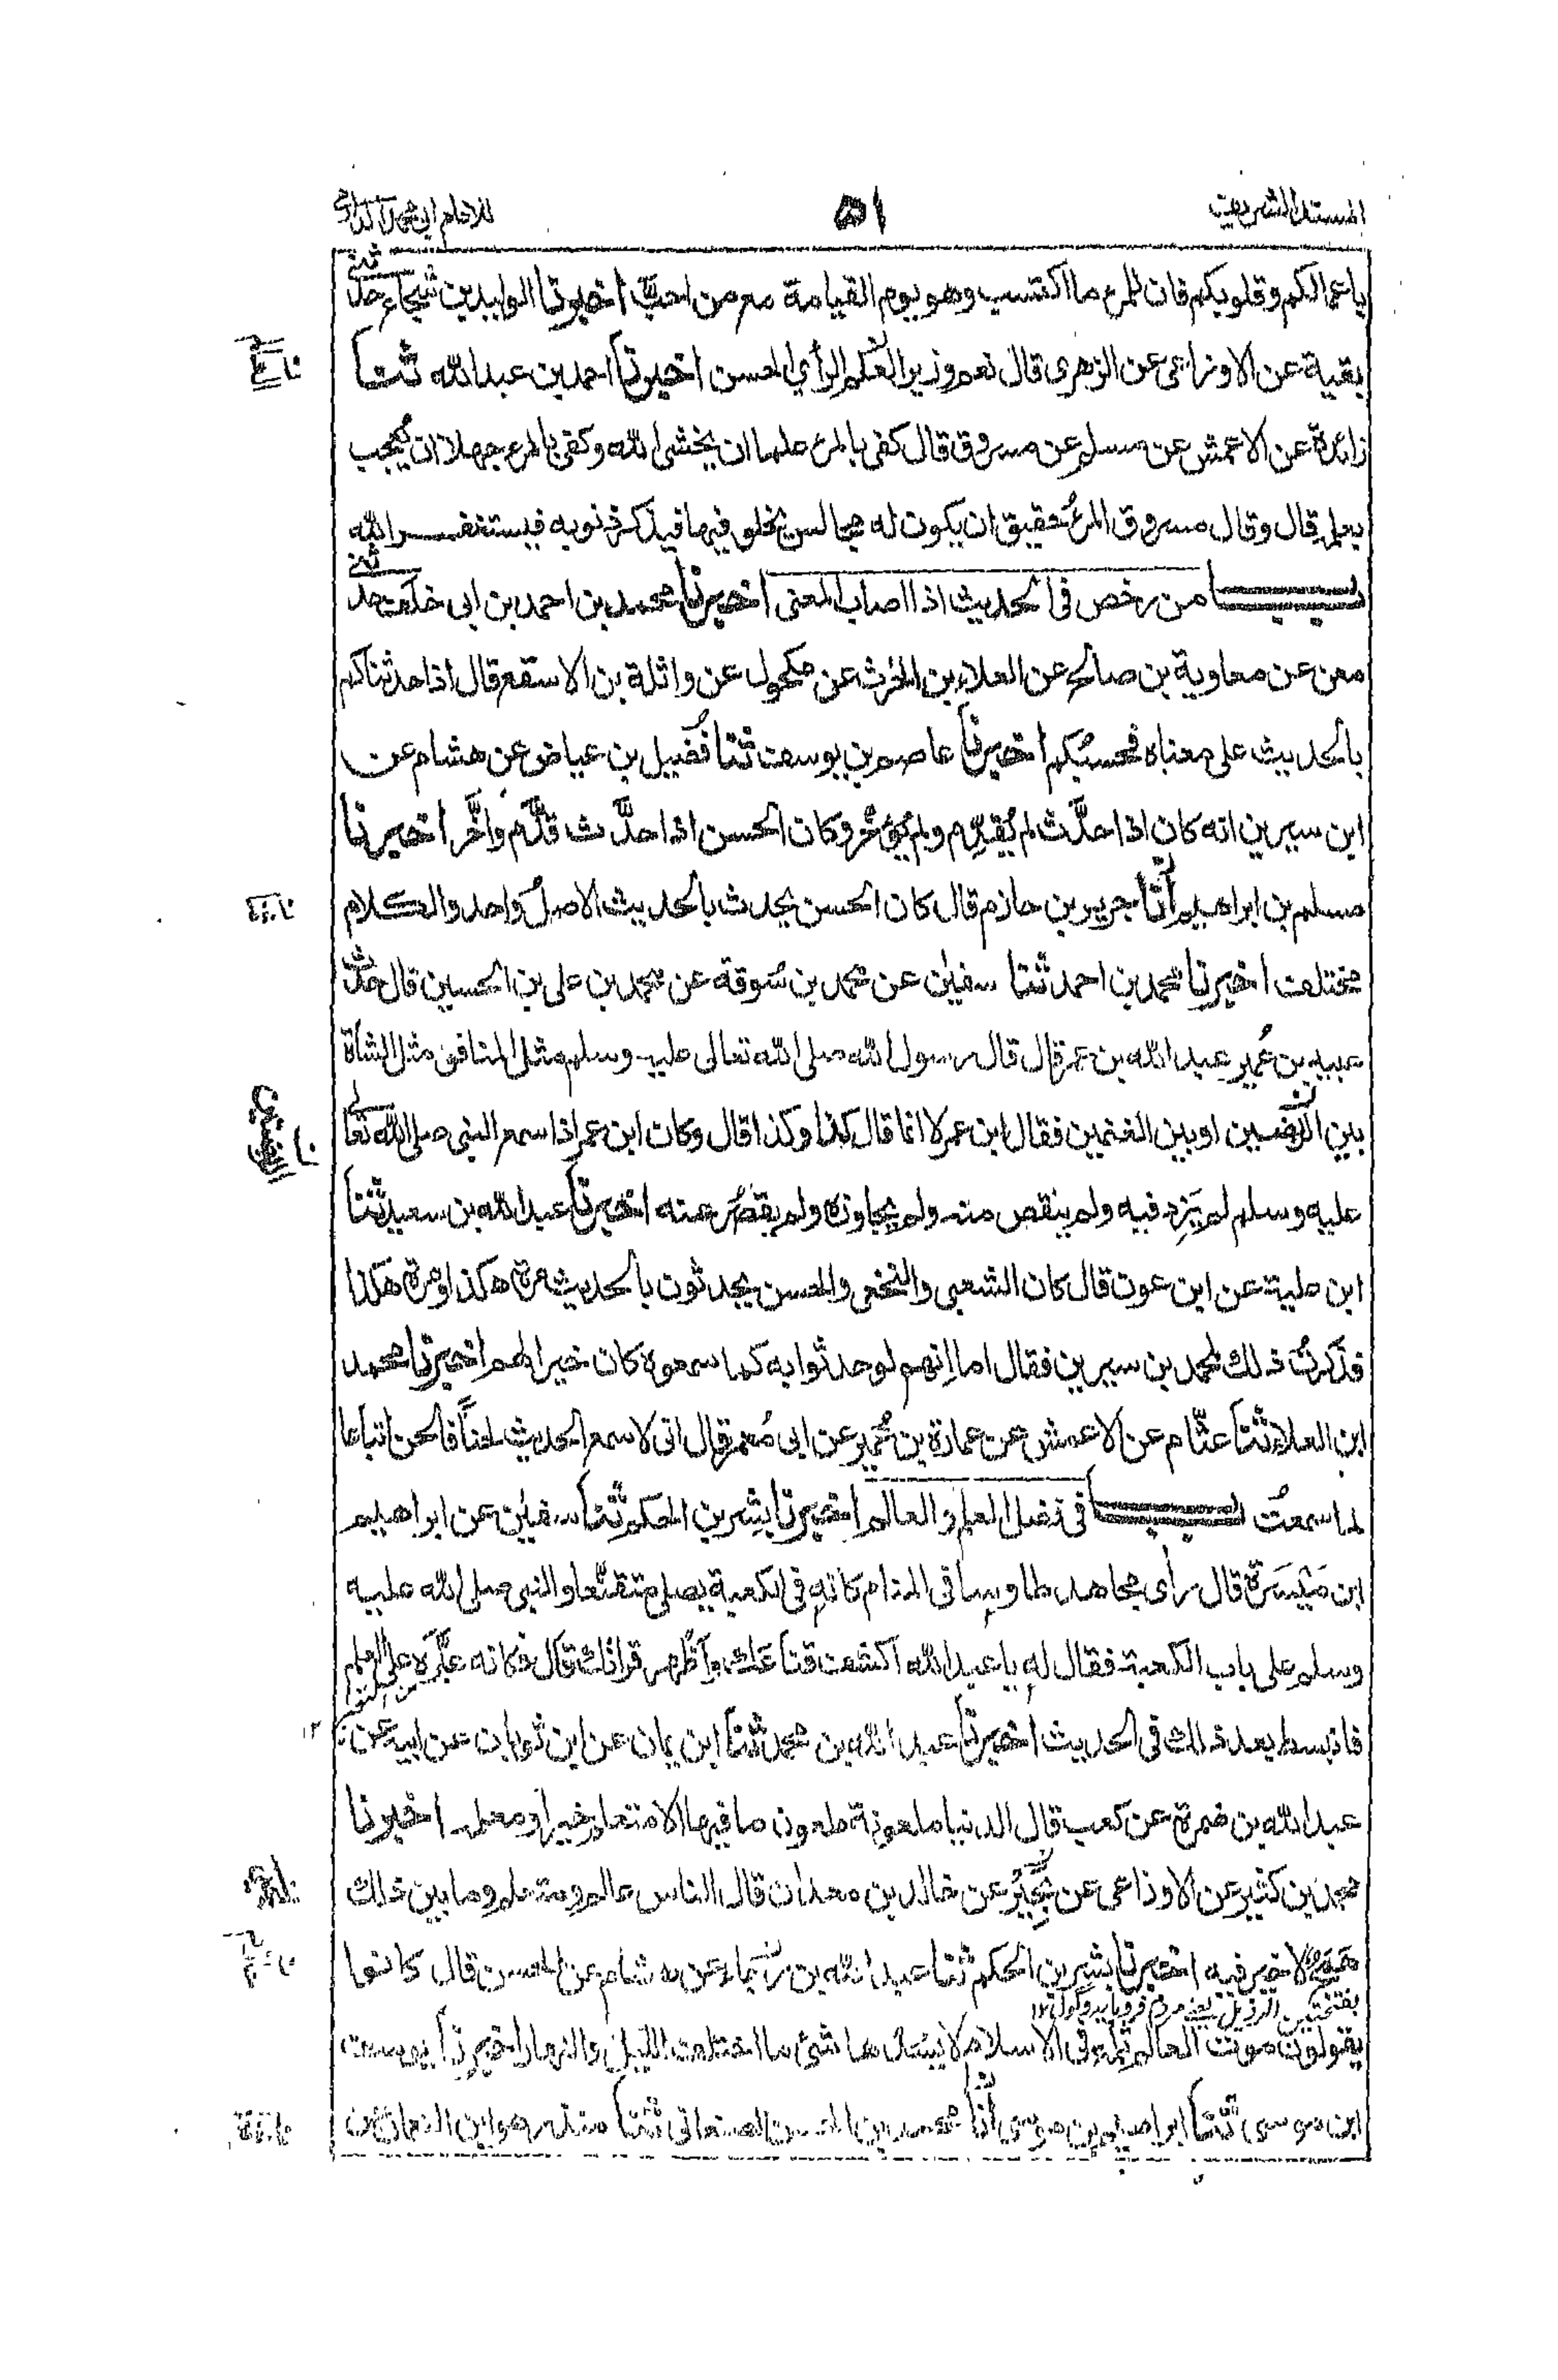 المسند الشريف
٥١
للامام ابي محمد الدارمي
باعمالكم وقلوبكم فان للمرء ما اكتسب وهو يوم القيامة مع من احبّ اخبرنا الوليد بن شجاع حدثني
بقية عن الاوزاعي عن الزهري قال نعم وزير العلم الرأي الحسن اخبرنا احمد بن عبد الله ثنا
زائدة عن الاعمش عن مسلم عن مسروق قال كفى بالمرء علما ان يخشى الله وكفى بالمرء جهلا ان يُعجب
بعلمه قال وقال مسروق المرءُ حقيق ان يكون له مجالس يخلو فيها فيذكر ذنوبه فيستغفر الله
باب من رخص في الحديث اذا اصاب المعنى اخبرنا محمد بن احمد بن ابي خلف حدثني
معن عن معاوية بن صالح عن العلاء بن الحرث عن مكحول عن واثلة بن الاسقع قال اذا حدثناكم
بالحديث على معناه فحسبُكم اخبرنا عاصم بن يوسف ثنا فُضيل بن عياض عن هشام عن
ابن سيرين انه كان اذا حدَّث لم يُقدِّم ولم يُؤخر وكان الحسن اذا حدَّث قدَّم واخَّر اخبرنا
مسلم بن ابراهيم انا جرير بن حازم قال كان الحسن يحدث بالحديث الاصلُ واحد والكلام
مختلف اخبرنا محمد بن احمد ثنا سفيٰن عن محمد بن سُوقة عن محمد بن علي بن الحسين قال حدث
عبيد بن عُمير عبد الله بن عمر قال قال رسول الله صلى الله تعالى عليه وسلم مثل المنافق مثل الشاة
بين الربضين او بين الغنمين فقال ابن عمر لا انما قال كذا وكذا قال وكان ابن عمر اذا سمع النبي صلى الله تعالى
عليه وسلم لم يَزِد فيه ولم ينقص منه ولم يجاوزه ولم يقصُر عنه اخبرنا عبد الله بن سعيد ثنا
ابن علية عن ابن عون قال كان الشعبي والنخعي والحسن يحدثون بالحديث مرة هكذا ومرة هكذا
فذكرتُ ذلك لمحمد بن سيرين فقال اما اِنهم لو حدثوا به كما سمعوه كان خيرا لهم اخبرنا محمد
ابن العلاء ثنا عثّام عن الاعمش عن عمارة بن عُمير عن ابي مُعمر قال اني لاسمع الحديث لحناً فالحن اتباعا
لما سمعتُ باب في فضل العلم والعالم اخبرنا بشر بن الحكم ثنا سفيٰن عن ابراهيم
ابن مَيسَرة قال رأى مجاهد طاوسا في المنام كانه في الكعبة يصلي متقنعا والنبي صلى الله عليه
وسلم على باب الكعبة فقال له يا عبد الله اكشف قناعك واَظهر قرأتك قال فكانه عبّره على العلم
فانبسط بعد ذلك في الحديث اخبرنا عبد الله بن محمد ثنا ابن يمان عن ابن ثوبان عن ابيه عن
عبد الله بن ضمرة عن كعب قال الدنيا ملعونة ملعون ما فيها الا متعلم خير او معلمه اخبرنا
محمد بن كثير عن الاوزاعي عن بَحِير عن خالد بن معدان قال الناس عالم ومتعلم وما بين ذلك
همج لا خير فيه اخبرنا بشر بن الحكم ثنا عبد الله بن رجاء عن هشام عن الحسن قال كانوا
يقولون موت العالم ثلمة في الاسلام لا يسدها شئ ما اختلف الليل والنهار اخبرنا يوسف
ابن موسى ثنا ابراهيم بن موسى انا محمد بن الحسن الصنعاني ثنا منذر هو ابن النعمان عن